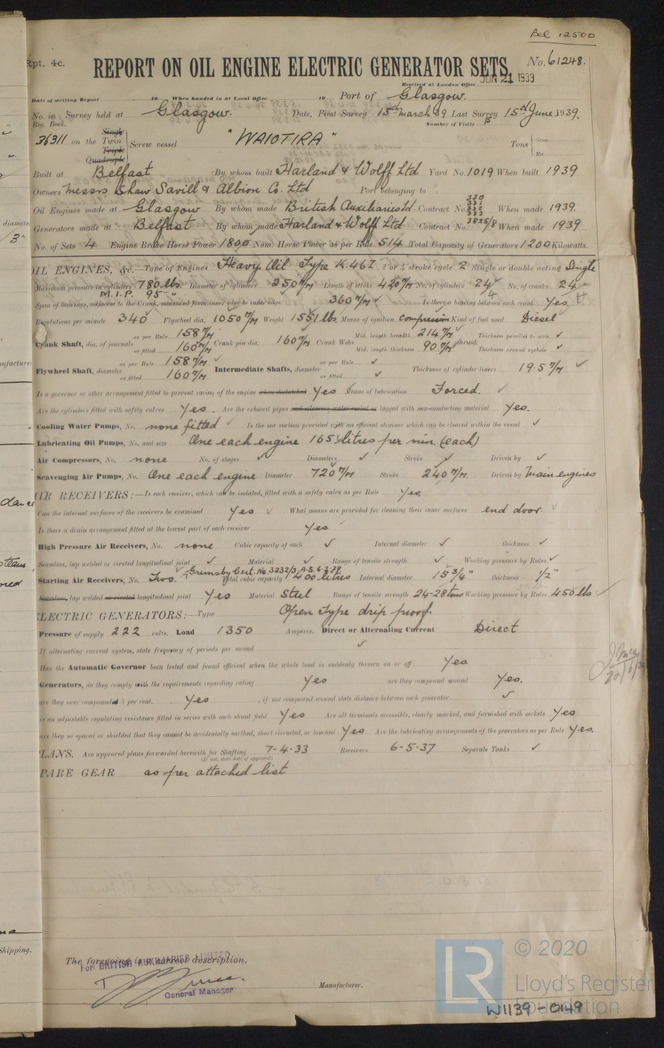 Bel 12500
Rpt. 4c.
REPORT ON OIL ENGINE ELECTRIC GENERATOR SETS.
No. 61248.
Received at London Office JUN 21 1939
Date of writing Report 19 When handed in at Local Office 19 Port of Glasgow.
No. in Survey held at Glasgow. Date, First Survey 15th March 39 Last Survey 15th June 1939.
Reg. Book. Number of Visits
36311 on the Single Twin Triple Quadruple Screw vessel "WAIOTIRA" Tons
Built at Belfast By whom built Harland & Wolff Ltd Yard No. 1019 When built 1939
Owners Messrs Shaw Savill & Albion Co. Ltd Port belonging to
Oil Engines made at Glasgow By whom made British Auxiliaries Ltd. Contract No. When made 1939.
Generators made at Belfast By whom made Harland & Wolff Ltd Contract No. When made 1939
No. of Sets 4 Engine Brake Horse Power 1800 Nom. Horse Power as per Rule 514 Total Capacity of Generators 1200 Kilowatts.
OIL ENGINES, &c.—Type of Engines Heavy Oil Type K.46I 2 or 4 stroke cycle 2 Single or double acting Single
Maximum pressure in cylinders 780 lbs. Diameter of cylinders 250 m/m Length of stroke 420 m/m No. of cylinders 24/4 No. of cranks 24
M.I.P. 95
Span of bearings, adjacent to the Crank, measured from inner edge to inner edge 360 m/m Is there a bearing between each crank Yes
Revolutions per minute 340 Flywheel dia. 1050 m/m Weight 1551 lbs Means of ignition compression Kind of fuel used Diesel
Crank Shaft, dia. of journals as per Rule 158 m/m as fitted 160 m/m Crank pin dia. 160 m/m Crank Webs Mid. length breadth 214 m/m Mid. length thickness 90 m/m Thickness parallel to axis Thickness around eyehole
Flywheel Shaft, diameter as per Rule 158 m/m as fitted 160 m/m Intermediate Shafts, diameter as per Rule as fitted Thickness of cylinder liners 19.5 m/m
Is a governor or other arrangement fitted to prevent racing of the engine when declutched Yes Means of lubrication Forced.
Are the cylinders fitted with safety valves Yes. Are the exhaust pipes and silencers water cooled or lagged with non-conducting material Yes.
Cooling Water Pumps, No. none fitted Is the sea suction provided with an efficient strainer which can be cleared within the vessel
Lubricating Oil Pumps, No. and size One each engine 165 litres per min (each)
Air Compressors, No. none No. of stages Diameters Stroke Driven by
Scavenging Air Pumps, No. One each engine Diameter 720 m/m Stroke 240 m/m. Driven by Main engines
AIR RECEIVERS:—Is each receiver, which can be isolated, fitted with a safety valve as per Rule Yes.
Can the internal surfaces of the receivers be examined Yes What means are provided for cleaning their inner surfaces end door.
Is there a drain arrangement fitted at the lowest part of each receiver Yes
High Pressure Air Receivers, No. none Cubic capacity of each Internal diameter thickness
Seamless, lap welded or riveted longitudinal joint Material Range of tensile strength Working pressure by Rules
Grimsby Cert. No 3232/3
Starting Air Receivers, No. Two. Total cubic capacity 400 litres Internal diameter 15 3/4" thickness 1/2"
Seamless, lap welded or riveted longitudinal joint Yes Material Steel Range of tensile strength 24-28 tons Working pressure by Rules 450 lbs
ELECTRIC GENERATORS:—Type Open Type drip proof.
Pressure of supply 222 volts. Load 1350 Amperes. Direct or Alternating Current Direct
If alternating current system, state frequency of periods per second
Has the Automatic Governor been tested and found efficient when the whole load is suddenly thrown on or off Yes
Generators, do they comply with the requirements regarding rating Yes are they compound wound Yes.
are they over compounded 5 per cent. Yes, if not compound wound state distance between each generator
is an adjustable regulating resistance fitted in series with each shunt field Yes Are all terminals accessible, clearly marked, and furnished with sockets Yes
are they so spaced or shielded that they cannot be accidentally earthed, short circuited, or touched Yes Are the lubricating arrangements of the generators as per Rule Yes.
PLANS. Are approved plans forwarded herewith for Shafting 7-4-33 Receivers 6-5-37 Separate Tanks
(If not, state date of approval)
SPARE GEAR as per attached list
The foregoing is a correct description.
For BRITISH AUXILIARIES LIMITED
General Manager
Manufacturer.
© 2020
LR
Lloyd's Register
Foundation
W1139-0149